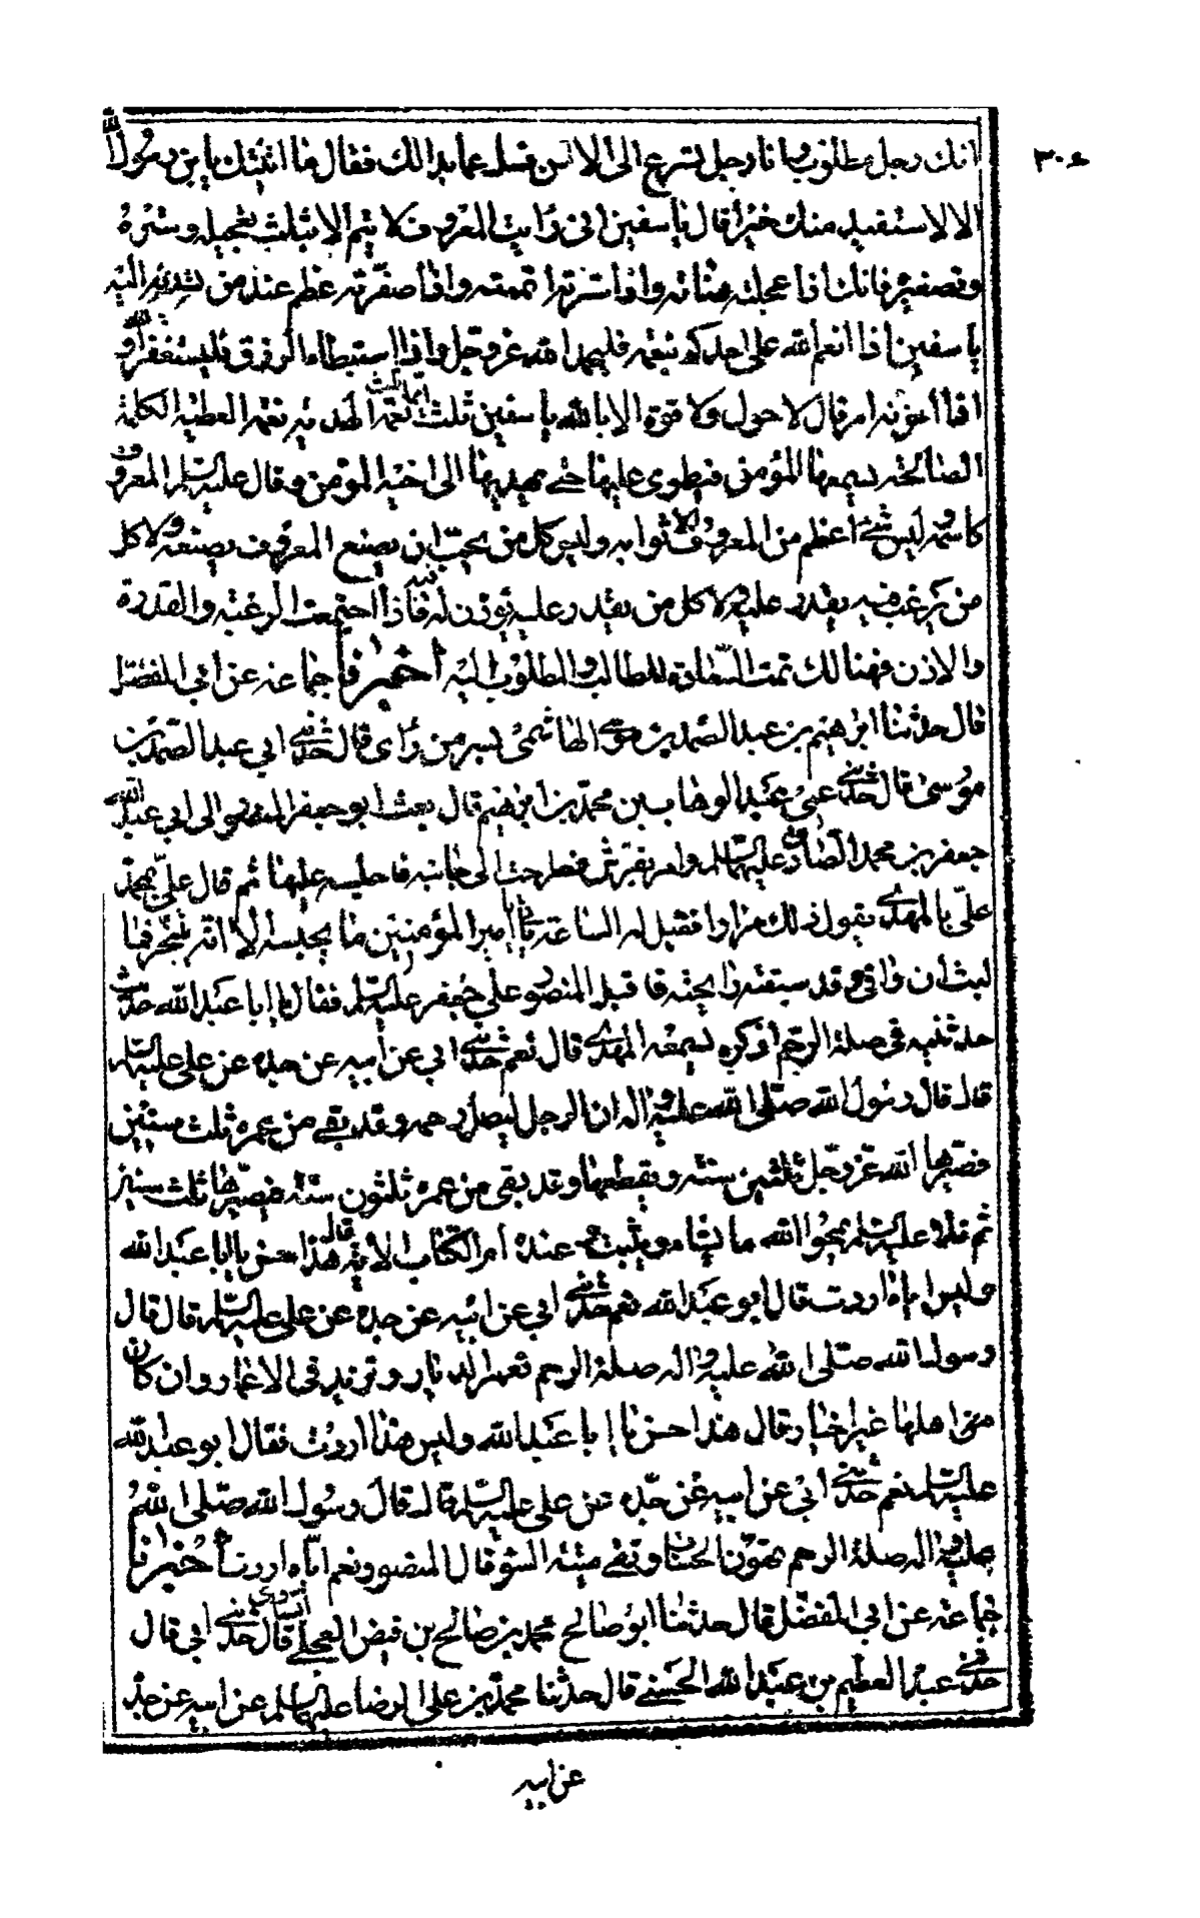 ٣٠٤
انك رجل مطلوب وانا رجل تسرع الى الالسن فسل عما بدا لك فقال ما اتيتك يا بن رسول الله
الا لاستفيد منك خيرا قال يا سفين انى رايت المعروف لا يتم الا بثلث تعجيله وستره
وتصغيره فانك اذا عجلته هناته واذا سترته اتممته واذا صغرته عظم عند من تسديه اليه
يا سفين اذا انعم الله على احدكم بنعمة فليحمد الله عز وجل واذا استبطاء الرزق فليستغفر الله و
اذا احزنه امر قال لا حول ولا قوة الا بالله يا سفين ثلث ايما ثلث نعمت الهدية نعمة العطية الكلمة
الصالحة يسمعها المؤمن فينطوى عليها حتى يهديها الى اخيه المؤمن وقال عليه السلام المعروف
كاسمه ليس شئ اعظم من المعروف الا ثوابه وليس كل من يحب ان يصنع المعروف يصنعه ولا كل
من يرغب فيه يقدر عليه ولا كل من يقدر عليه يؤذن له فيه فاذا اجتمعت الرغبة والقدرة
والاذن فهنالك تمت السعادة للطالب والمطلوب اليه أخبرنا جماعة عن ابي المفضل
قال حدثنا ابرهيم بن عبد الصمد بن موسى الهاشمى بسر من راى قال حدثنى ابي عبد الصمد بن
موسى قال حدثنى عمى عبد الوهاب بن محمد بن ابرهيم قال بعث ابو جعفر المنصور الى ابي عبد الله
جعفر بن محمد الصادق عليهما السلام وامر بفرش فطرحت الى جانبه فاجلسه عليها ثم قال على بمحمد
على بالمهدى يقول ذلك مرارا فقيل له الساعة ياتى يا امير المؤمنين ما يحبسه الا انه يتبخر فما
لبث ان وافى وقد سبقته رايحته فاقبل المنصور على جعفر عليه السلام فقال يا ابا عبد الله حديث
حدثتنيه فى صلة الرحم اذكره يسمعه المهدى قال نعم حدثنى ابي عن ابيه عن جده عن على عليه السلام
قال قال رسول الله صلى الله عليه واله ان الرجل ليصل رحمه وقد بقى من عمره ثلث سنين
فصيرها الله عز وجل ثلثين سنة ويقطعها وقد بقى من عمره ثلثون سنة فيصيرها ثلث سنين
ثم تلا عليه السلام يمحوا الله ما يشاء ويثبت وعنده ام الكتاب الاية قال هذا حسن يا ابا عبد الله
وليس اياه اردت قال ابو عبد الله نعم حدثنى ابي عن ابيه عن جده عن على عليه السلام قال قال
رسول الله صلى الله عليه واله صلة الرحم تعمر الديار وتزيد فى الاعمار وان كان
اهلها غير اخيار قال هذا حسن يا ابا عبد الله وليس هذا اردت فقال ابو عبد الله
عليه السلام نعم حدثنى ابي عن ابيه عن جده عن على عليه السلام قال قال رسول الله صلى الله
عليه واله صلة الرحم تهون الحساب وتقى ميتة السوء قال المنصور نعم اياه اردت أخبرنا
جماعة عن ابي المفضل قال حدثنا ابو صالح محمد بن صالح بن فيض العجلى الساوى قال حدثنى ابي قال
حدثنى عبد العظيم بن عبد الله الحسنى قال حدثنا محمد بن على الرضا عليهما السلام عن ابيه عن جده
عن ابيه